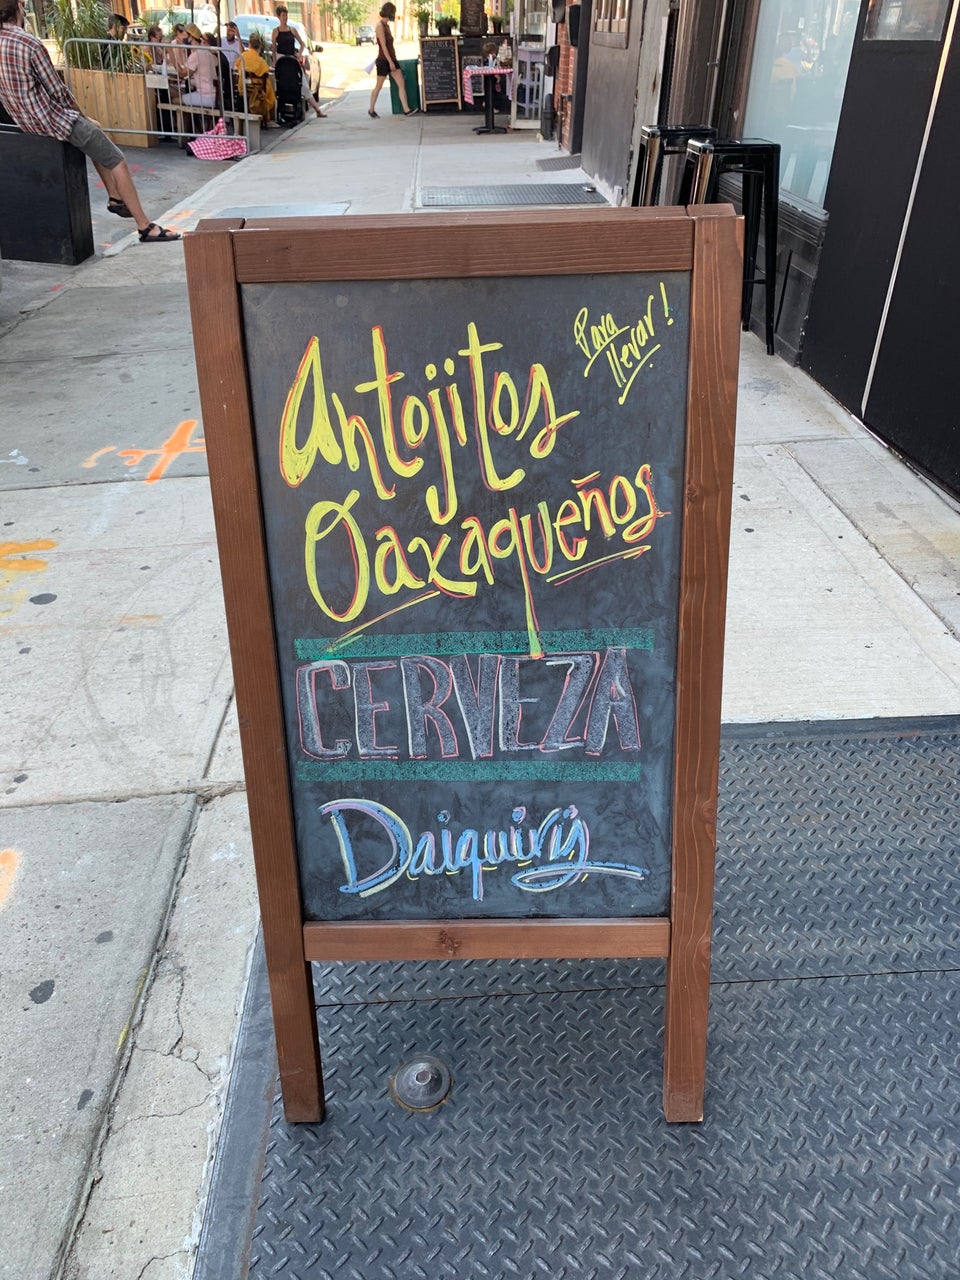 Para
llevar!
Antojitos
Oaxaqueños
CERVEZA
Daiquiris